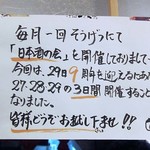 毎月一回そうげつにて
「日本酒の会」を開催しておりまして
今回は、29日9周年を迎えるにあた
27・28・29の3日間開催すること
なりました。
皆様どうぞお越し下さませ!!